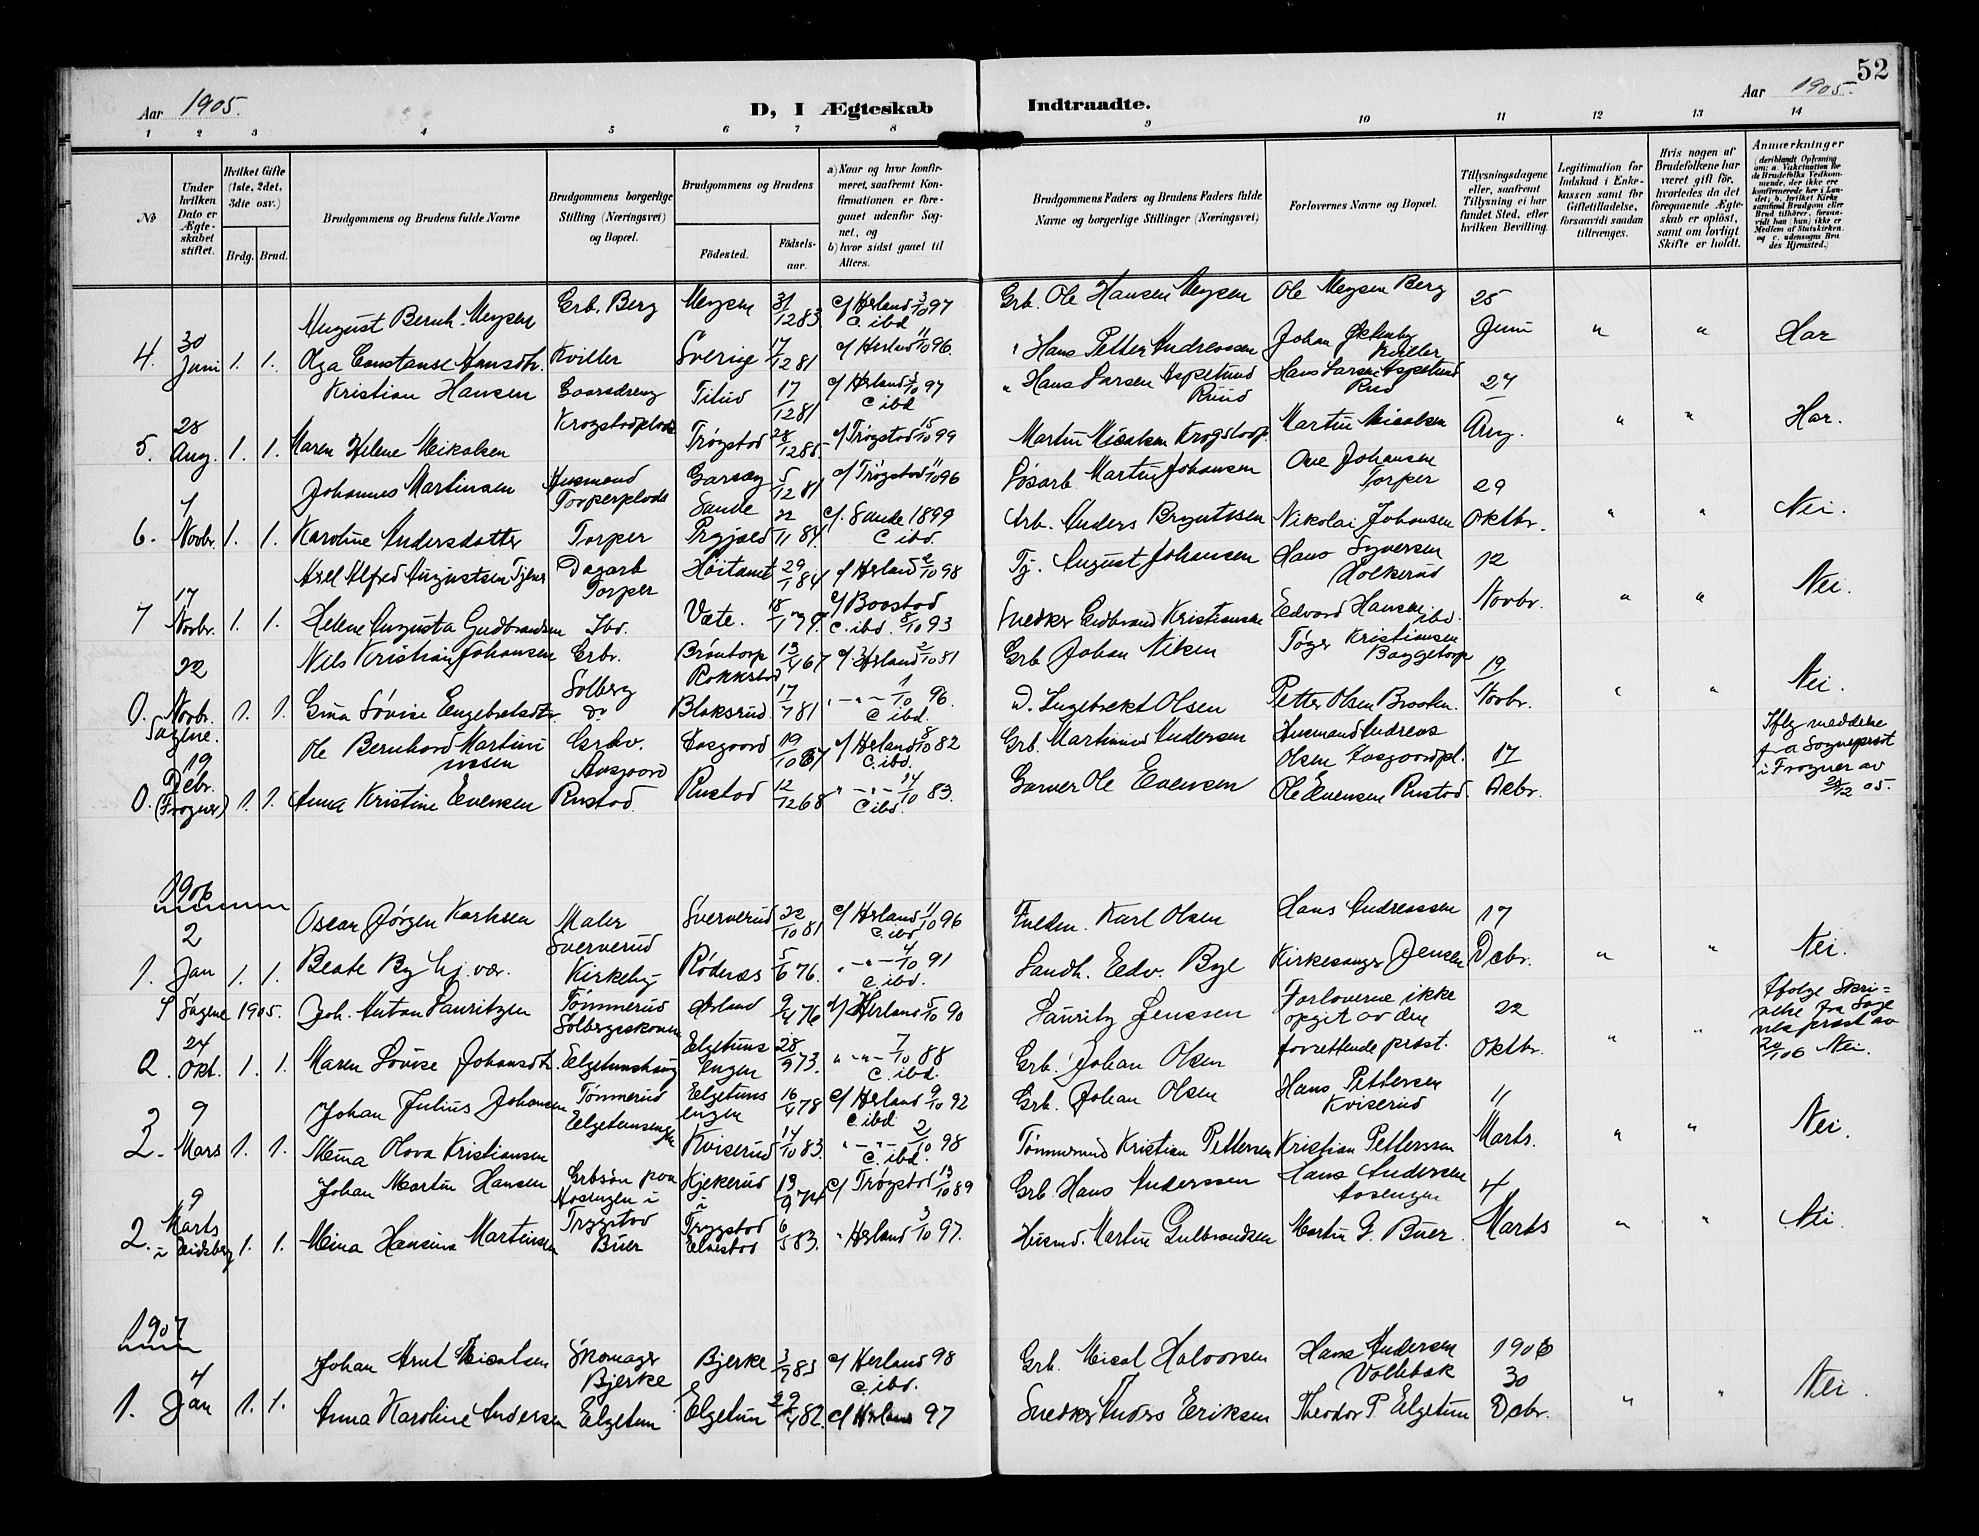 52
Aar 1905.
D, I Ægteskab Indtraadte.
Aar 1905.
1 2 3 4 5 6 7 8 9 10 11 12 13 14
№
Under hvilken Dato er Ægteskabet stiftet.
Hvilket Gifte (1ste, 2det, 3die osv.)
Brdg. Brud.
Brudgommens og Brudens fulde Navne
Brudgommens borgerlige Stilling (Næringsvei) og Bopæl.
Brudgommens og Brudens
Fødested.
Fødselsaar.
a) Naar og hvor konfirmeret, saafremt Konfirmationen er foregaaet udenfor Sognet, og
b) hvor sidst gaaet til Alters.
Brudgommens Faders og Brudens Faders fulde Navne og borgerlige Stillinger (Næringsvei)
Forlovernes Navne og Bopæl.
Tillysningsdagene eller, saafremt Tillysning ei har fundet Sted, efter hvilken Bevilling.
Legitimation for Indskud i Enkekassen samt for Giftetilladelse, forsaavidt saadan tiltrænges.
Hvis nogen af Brudefolkene har været gift før, hvorledes da det foregaaende Ægteskab er opløst, samt om lovligt Skifte er holdt.
Anmærkninger
August Bernh. Mysen Grb. Berg Mysen 31/12 83 c/ Herland 3/10 97 c. ibd. Grb. Ole Hansen Mysen Ole Mysen Berg 25
4. 30 Juni 1. 1. Olga Constanse Hansdtr. Kviller Sverige 17/12 81 c/ Herland 11/10 96. " Hans Petter Andreassen Johan Kviller Juni " " Har
Kristian Hansen Gaardsdreng 17/12 81 c/ Herland 3/10 97 c ibd " Hans Larsen Aspelund Ruud Hans Larsen Aspelund Rud 27
5. 28 Aug. 1. 1. Maren Helene Nikolsen Krogstadplads Trøgstad 28/12 85 c/ Trøgstad 15/10 99 Martin Nicolsen Krogstadp. Martin Nicolsen Aug. " " Har.
Johannes Martinsen Husmand Torperplads 5/12 81 c/ Trøgstad 11/10 96 Løsarb. Martin Johansen Ove Johansen Torper 29
6. 7 Novbr. 1. 1. Karoline Andersdatter Torper Sande 22/11 84. c/. Sande 1899 c ibd. Arb. Anders Bryntesen Nikolai Johansen Oktbr. " " Nei.
Axel Alfred Augustsen Dagarb Torper Høitomt 29/1 84 c/ Herland 2/10 98 Tj. August Johansen Hans Syversen Holkerud 12
7 17 Novbr. 1. 1. Helene Augusta Gudbrandsen Ibd. Væte. 18/1 79. c/ Baastad c. ibd. 8/10 93 Snedker Gudbrand Kristiansen Edvard Hansen ibd. Novbr. " " Nei.
22 Nils Kristian Johansen Grbr. Solberg Brøntorp Rokkestad 13/4 67 c/ Herland 2/10 81 Grb Johan Nilsen Tøger Kristiansen Baggetorp 19
0. Novbr. 1. 1. Gina Lovise Engebretsdtr. do Blaksrud 17/7 81 " - " - 1/10 96. c ibd. D. Ingebrekt Olsen Petter Olsen Novbr. " " Nei.
Sogne. 19 Ole Bernhard Martiniussen Grdbr. Aasgaard Aasgaard 19/10 67 c/ Herland 8/10 82 c. ibd. Grb. Martinius Andersen Husmand Andreas Olsen Aasgaardpl. 17
0. Debr. (Frogner) 1. 1. Anna Kristine Evensen Rustad. Rustad 12/12 68 " - " - 14/10 83. c ibd. Garver Ole Evensen Ole Evensen Rustad. Debr.
Iflg meddelse fra Sogneprest i Frogner av 21/12 05.
1906
2 Oscar Jørgen Karlsen Maler Sververud Sververud 22/10 81 c/ Herland 11/10 96 c. ibd. Karl Olsen Hans Andreassen 17
1. Jan 1. 1. Beate By hj. vær. Kirkeby Rødenæs 5/6 76. " - " - 4/10 91 c. ibd. Landh. Edv. Bye Kirkesanger Jensen Debr. " " Nei.
Sagene 1905. Joh. Anton Lauritzen Tømmerud Solbergskoven 9/4 76 c/ Herland 5/10 90 Lauritz Jenssen Forloverne ikke opgit av den forrettende prest. 22
0. 24 Okt. 1. 1. Maren Lovise Johansdtr. Elgetunshaug Elgetuns Engen 28/9 73. " - " - 7/10 88 c. ibd. Grb. Johan Olsen Oktbr. " "
Ifølge Skrivelse fra Sagenes prest av 20/1 06 Nei.
9 Johan Julius Johansen Tømmerud Elgetunsengen Elgetuns engen 16/4 78 c/ Herland 9/10 92 c. ibd Grb. Johan Olsen Hans Pettersen Kviserud 11
2. Mars 1. 1. Mina Olava Kristiansen Kviserud 14/10 83. " - " - 2/10 98 c. ibd. Tømmermand Kristian Pettersen Kristian Petterssen Marts. " " Nei.
9 Johan Martin Hansen Grbsøn paa Aosengen i Trygstad Kjekerud i Trygstad 13/9 74 c/ Trøgstad 13/10 89 Grb. Hans Anderssen Hans Andersen Aosengen 4
2. Marts i Eidsberg 1. 1. Mina Hansine Martinsen Buer Elvestad 6/5 83. " Herland 3/10 97. Husmd. Martin Gulbrandsen Martin G. Buer. Marts " " Nei.
1907
4 Johan Arnt Nicolsen Skomager Bjerke Bjerke 3/7 83 c/ Herland 98 c. ibd. Grb. Nicol Halvorsen Hans Andersen Vollebæk 1906 30
1. Jan 1. 1. Anna Karoline Andersen Elgetun Elgetun 29/4 82. c/ Herland 97 Snedker Anders Eriksen Theodor P. Elgetun Debr. " " Nei.